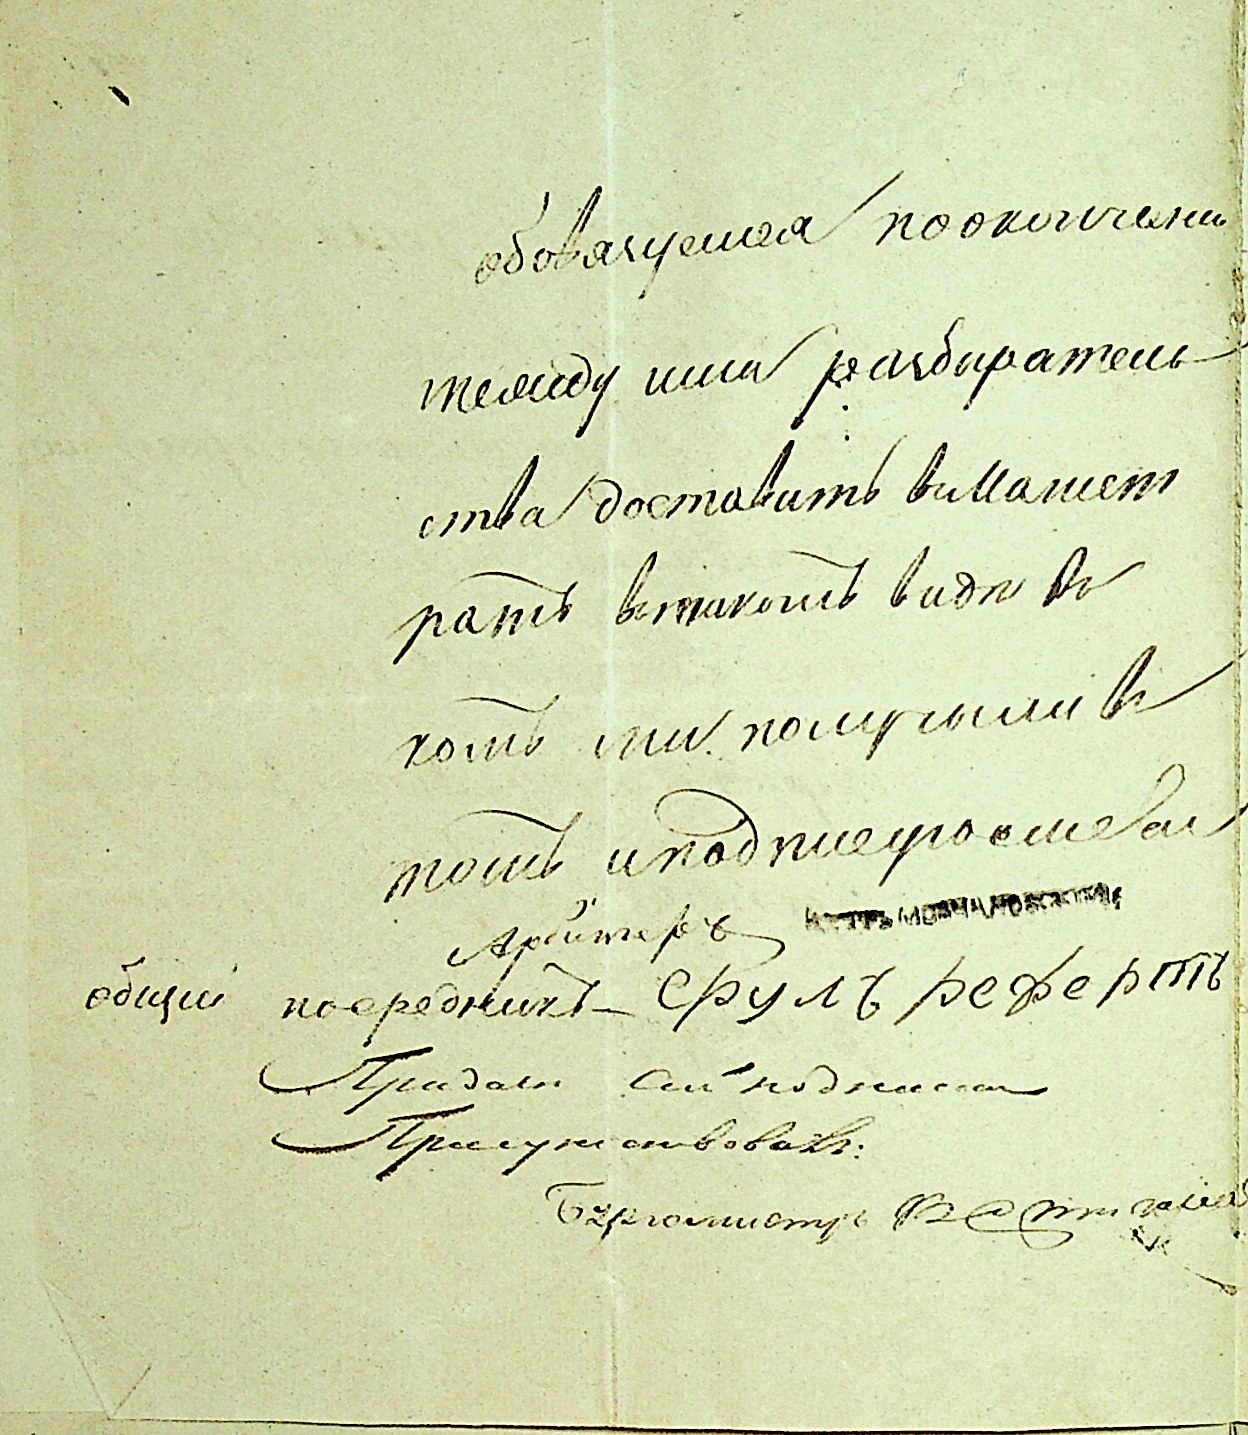 обовязуемся поокончени
междду ими разбиратель
ства доставить вмагист
ратъ втакомъ виде в
комъ ми получыли в
томъ и подписуюсмеся
Арбитеръ
общий посредникъ Срулъ рефертъ
При дачи сей подписки
Присуцтвовалъ:
Бургомистръ